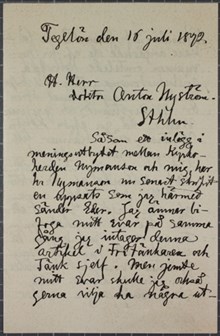 Tegelön den 16 juli 1892.
Hr. Herr
doktor Anton Nyström.
Sthlm.
Såsom ett inlägg i
meningsutbytet mellan Kyrko-
herden Nymanson och mig, har
hr Nymanson nu senast skrifvit
en uppsats som jag härmed
sänder Eder. Jag ämnar bi-
foga mitt svar på samma
gång jag intager denna
artikel i Fritänkaren och
Tänk sjelf. Men jemte
mitt svar skulle jag också
gerna vilja ha några ut-